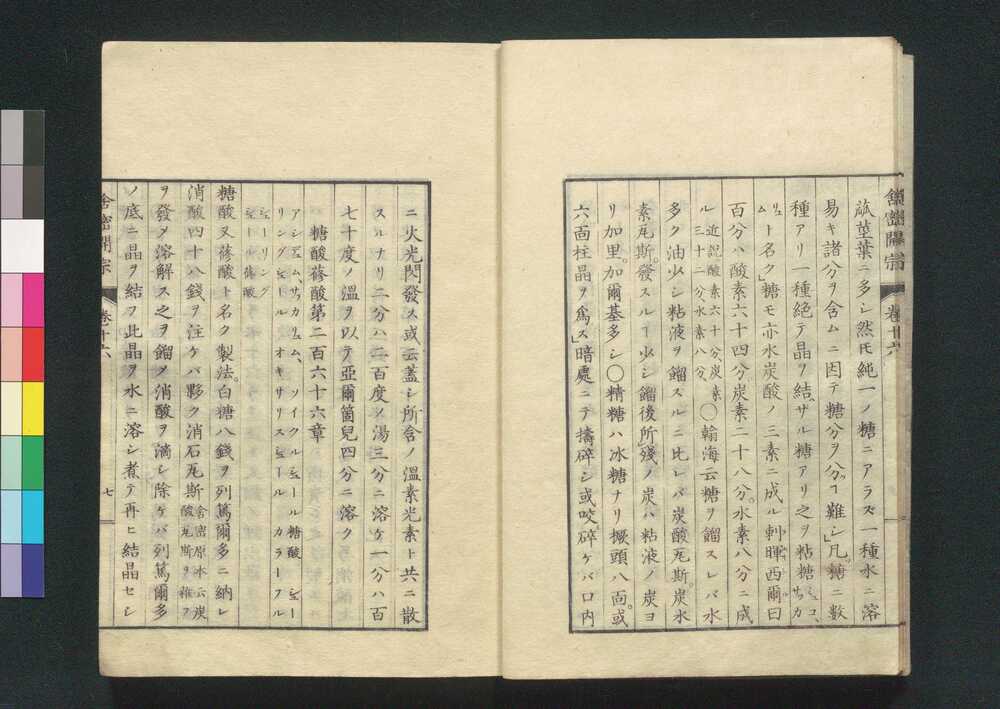 舎密開宗 巻十六
蓏莖葉ニ多シ然𪜈純一ノ糖ニアラズ一種水ニ溶
易キ諸分ヲ含ムニ因テ糖分ヲ分ヿ難シ凡糖ニ数
種アリ一種絶テ晶ヲ結ザル糖アリ之ヲ粘糖
ムート名ク」糖モ亦水炭酸ノ三素ニ成ル 剌暉西爾曰
百分ハ酸素六十四分炭素二十八分。水素八分ニ成
ル 近説酸素六十分、炭素
三十二分、水素八分、 〇翰海云糖ヲ餾スレバ水
多ク油少シ粘液ヲ餾スルニ比レバ炭酸瓦斯。炭水
素瓦斯。發スルヿ少シ餾後所殘ノ炭ハ粘液ノ炭ヨ
リ加里。加爾基多シ〇精糖ハ冰糖ナリ橛頭八面。或
六面柱晶ヲ為ス」暗處ニテ擣碎シ或咬碎ケバ口内
ニ火光閃發ス或云蓋シ所含ノ温素光素ト共ニ散
スルナリ二分ハ二百度ノ湯三分ニ溶ケ一分ハ百
七十度ノ温ヲ以テ亞爾箇兒四分ニ溶ク
糖酸蓚酸第二百六十六章
アシデュム、サッカリュム、ソイクルシュール 糖酸、シュー
リングシュールオキサリスシュールカラーフル
シューリング
シュール 蓚酸
糖酸又蓚酸ト名ク製法。白糖八錢ヲ列篤爾多ニ納レ
消酸四十八錢ヲ注ケバ夥ク消石瓦斯 舎密原本云炭
酸瓦斯ヲ雑フ
ヲ發メ溶解ス之ヲ餾メ消酸ヲ滴シ除ケバ列篤爾多
ノ底ニ晶ヲ結フ此晶ヲ水ニ溶シ煮テ再ヒ結晶セシ
舎密開宗 巻十六 七